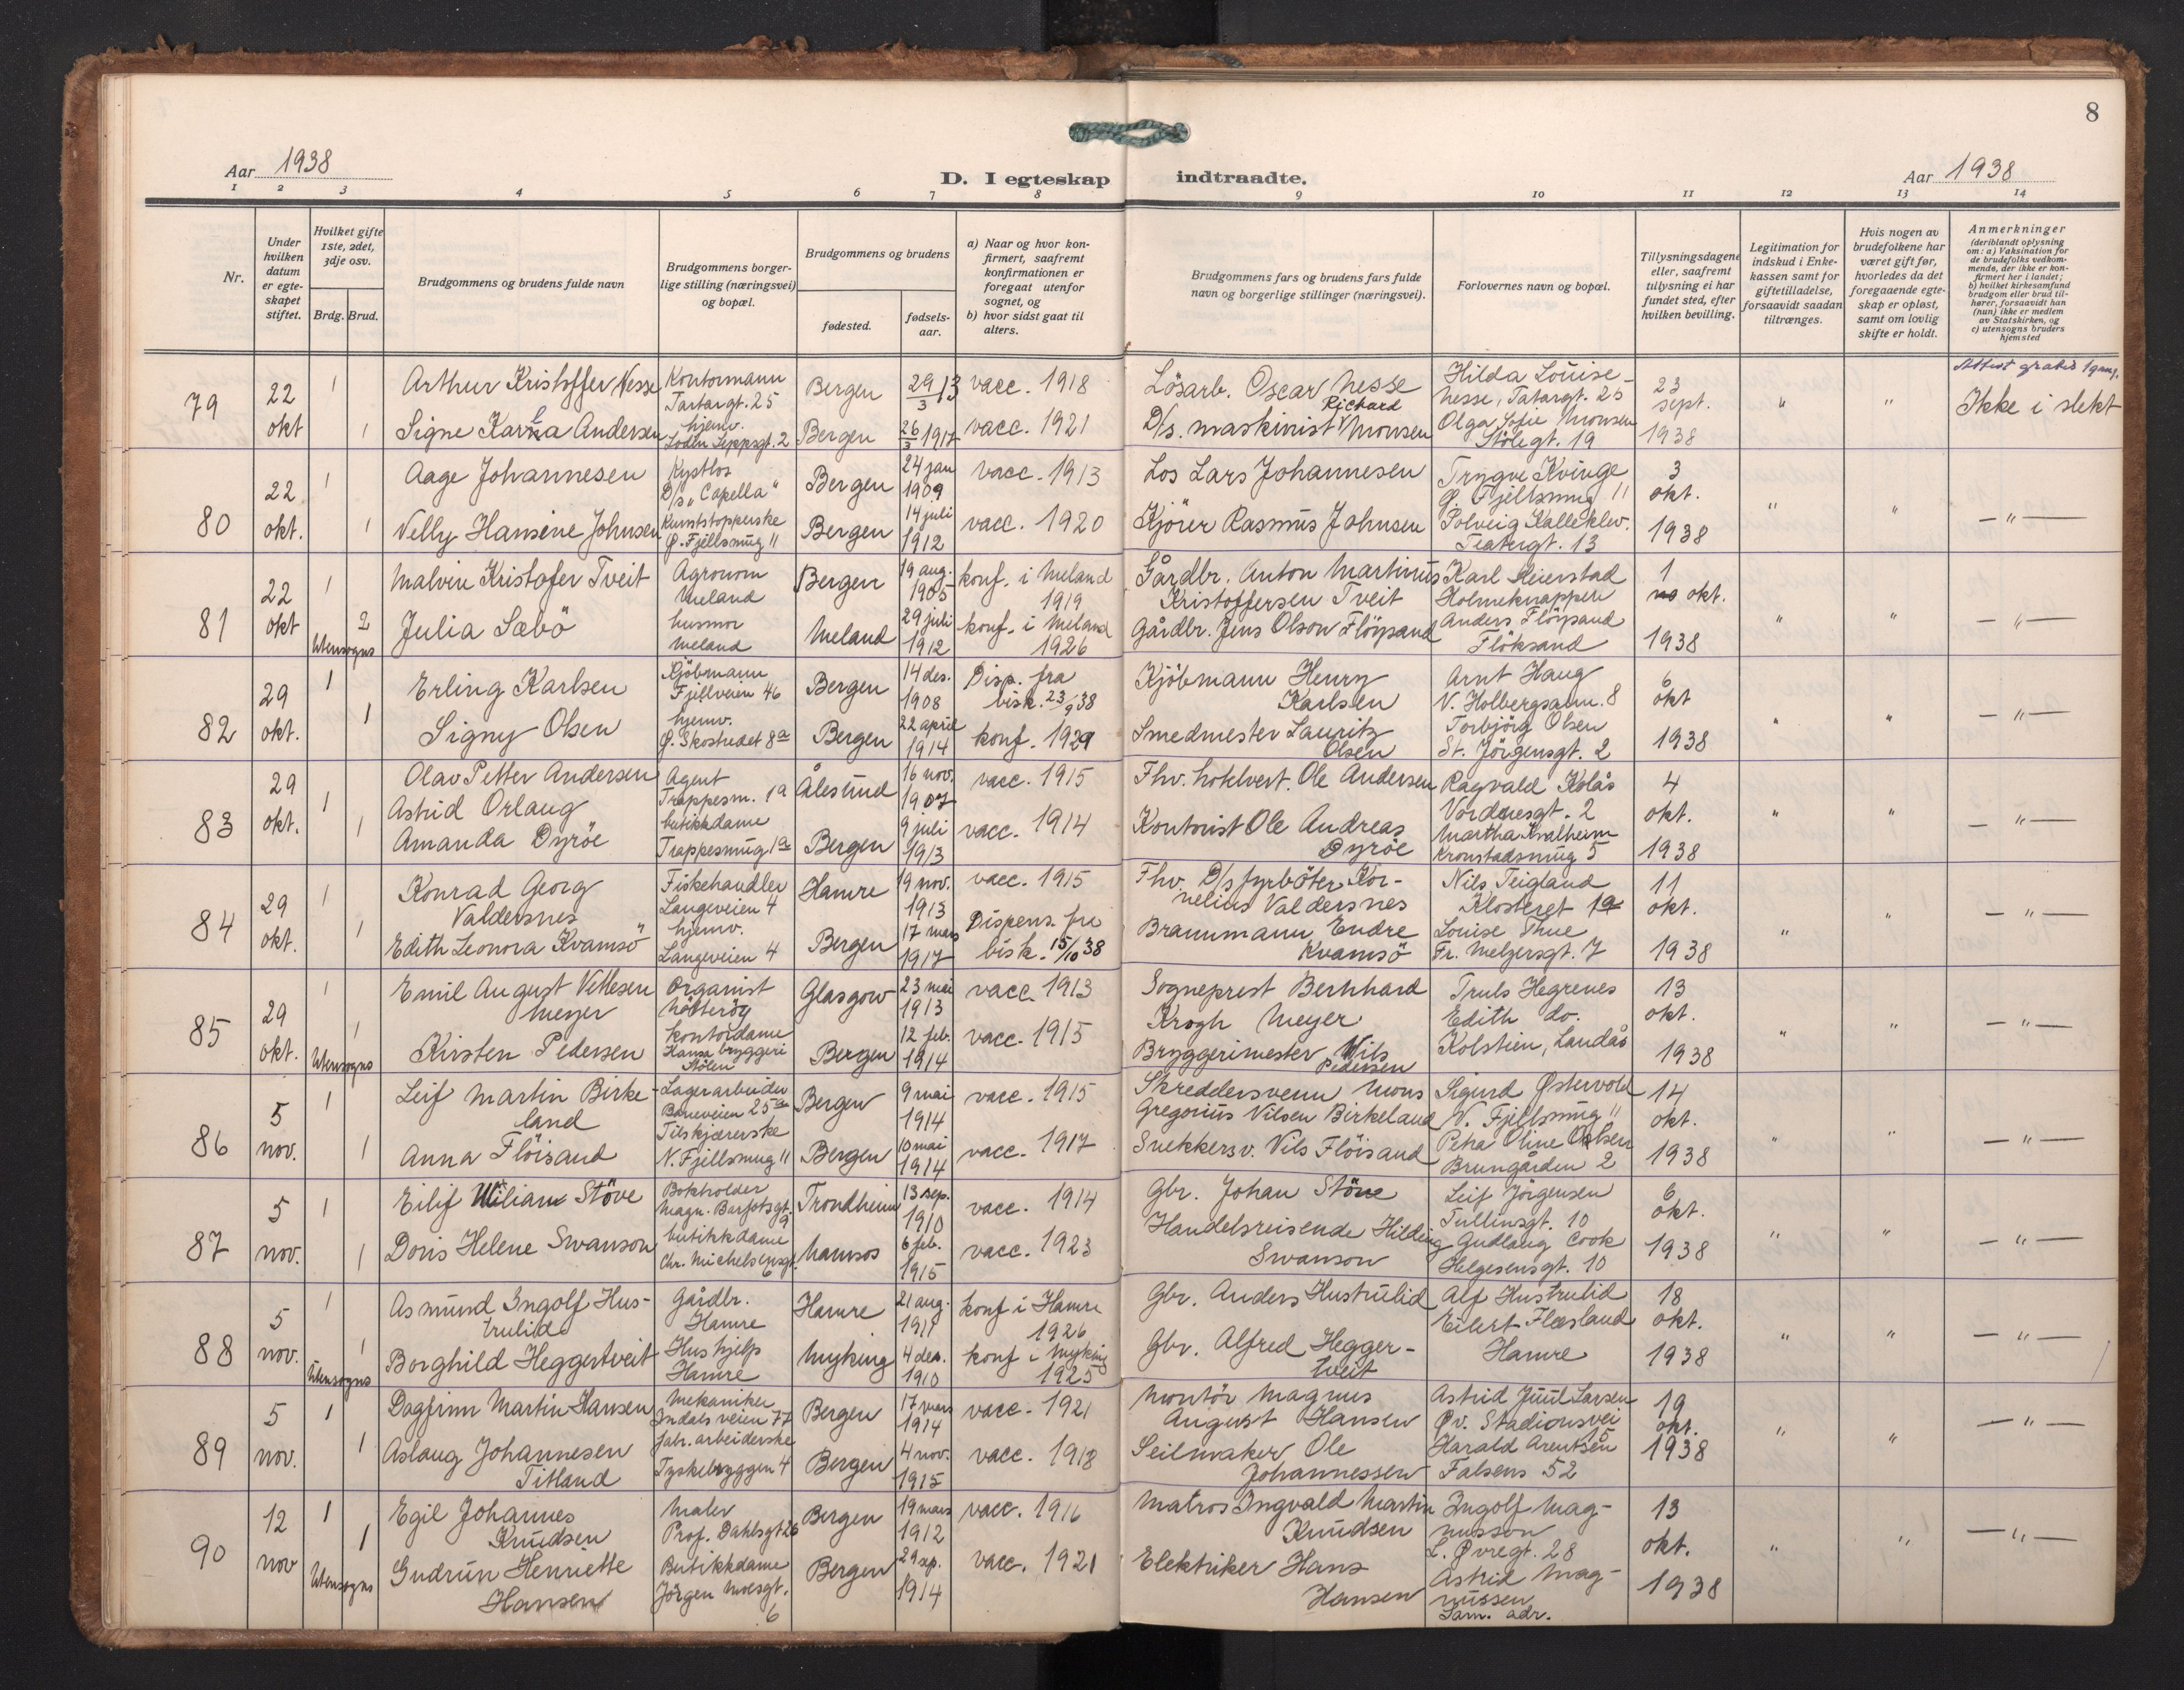 8
Aar 1938
D. I egteskap indtraadte.
Aar 1938
1 2 3 4 5 6 7 8 9 10 11 12 13 14
Nr.
Under hvilken datum er egteskapet stiftet.
Hvilket gifte 1ste, 2det, 3dje osv.
Brdg. Brud.
Brudgommens og brudens fulde navn
Brudgommens borgerlige stilling (næringsvei) og bopæl.
Brudgommens og brudens
fødested.
fødselsaar.
a) Naar og hvor konfirmert, saafremt konfirmationen er foregaat utenfor sognet, og
b) hvor sidst gaat til alters.
Brudgommens fars og brudens fars fulde navn og borgerlige stillinger (næringsvei).
Forlovernes navn og bopæl.
Tillysningsdagene eller, saafremt tillysning ei har fundet sted, efter hvilken bevilling.
Legitimation for indskud i Enkekassen samt for giftetilladelse, forsaavidt saadan tiltrænges.
Hvis nogen av brudefolkene har været gift før, hvorledes da det foregaaende egteskap er opløst, samt om lovlig skifte er holdt.
Anmerkninger
(deriblandt oplysning om: a) Vaksination for de brudefolks vedkommende, der ikke er konfirmert her i landet; b) hvilket kirkesamfund brudgom eller brud tilhører, forsaavidt han (hun) ikke er medlem av Statskirken, og c) utensogns bruders hjemsted
79 22 okt 1 Arthur Kristoffer Nesse Kontormann Tartargt. 25 Bergen 29/3 13 vacc. 1918 Lösarb. Oscar Nesse Hilda Louise Nesse, Tatargt. 25 23 sept. 1938 " " Attest gratis 1 gang. Ikke i slekt
1 Signe Karla Andersen hjemv. Lodin Leppsgt. 2 Bergen 26/3 1917 vacc. 1921 D/s. maskinist Richard Monsen Olga Sofie Monsen Stölegt. 19
80 22 okt. 1 Aage Johannesen Kystlos D/s "Capella" Bergen 24 jan 1909 vacc. 1913 Los Lars Johannesen Trygve Kvinge Ø. Fjellsmug 11 3 okt. 1938 " " — " —
1 Nelly Hansine Johnsen Kunststopperske Ø. Fjellsmug 11 Bergen 14 juli 1912 vacc. 1920 Kjörer Rasmus Johnsen Solveig Kalleklev. Teatergt. 13
81 22 okt 1 Malvin Kristofer Tveit Agronom Meland Bergen 19 aug. 1905 konf. i Meland 1919 Gårdbr. Anton Martinus Kristoffersen Tveit Karl Meierstad Holmeknappen 1 okt. 1938 " " — " —
Utensogns 2 Julia Sæbö husmor Meland Meland 29 juli 1912 konf. i Meland 1926 Gårdbr. Jens Olson Flöysand Anders Flöysand Flöksand
82 29 okt. 1 Erling Karlsen Kjöbmann Fjellveien 46 Bergen 14 des. 1908 Disp. fra bisk. 23/9 38 Kjöbmann Henry Karlsen Arnt Haug V. Holbergsalm. 8 6 okt 1938 " " — " —
1 Signy Olsen hjemv. Ø. Skostredet 8a Bergen 22 april 1914 konf. 1929 Smedmester Lauritz Olsen Torbjörg Olsen St. Jörgensgt. 2
83 29 okt. 1 Olav Petter Andersen Agent Trappesm. 1a Ålesund 16 nov. 1907 vacc. 1915 Fhv. hotelvert. Ole Andersen Ragvald Kolås 4 okt. 1938 " " — " —
1 Astrid Orlaug Amanda Dyröe butikkdame Trappesmug 1a Bergen 9 juli 1913 vacc. 1914 Kontorist Ole Andreas Dyröe Martha Kvalheim Kronstadsmug 5
84 29 okt. 1 Konrad Georg Valdersnes Fiskehandler Langeveien 4 Hamre 19 nov. 1913 vacc. 1915 Fhv. D/s fyrböter Kornelius Valdersnes Nils Teigland Klosteret 1a 11 okt. 1938 " " — " —
1 Edith Leonora Kvamsö hjemv. Langeveien 4 Bergen 17 mars 1917 Dispens. fra bisk. 15/10 38 Brannmann Endre Kvamsö Louise Thue Fr. Melzersgt. 7
85 29 okt. 1 Emil August Vettesen Meyer Organist Nötteröy Glasgow 23 mai 1913 vacc. 1913 Sogneprest Bernhard Krogh Meyer Truls Hegrenes Edith do. Kolstien, Landås 13 okt. 1938 " " — " —
Utensogns 1 Kirsten Pedersen kontordame Hansa bryggeri Stölen Bergen 12 feb. 1914 vacc. 1915 Bryggerimester Nils Pedersen
86 5 nov. 1 Leif Martin Birkeland Lagerarbeider Baneveien 25a Bergen 9 mai 1914 vacc. 1915 Skreddersvenn Mons Gregorius Nilsen Birkeland Sigurd Østervold N. Fjellsmug 11 14 okt. 1938 " " — " —
1 Anna Flöisand Tilskjærerske N. Fjellsmug 11 Bergen 10 mai 1914 vacc. 1917 Snekkersv. Nils Flöisand Petra Oline Olsen Brungården 2
87 5 nov. 1 Eilif Wiliam Stöve Bokholder Magn. Barfotsgt. 9 Trondheim 13 sep. 1910 vacc. 1914 Gbr. Johan Stöve Leif Jörgensen Tullinsgt. 10 6 okt. 1938 " " — " —
1 Doris Helene Swanson butikkdame Chr. Michelsensgt. 6 Namsos 6 feb. 1915 vacc. 1923 Handelsreisende Hilding Swanson Gudlaug Cook Helgesensgt. 10
88 5 nov. 1 Asmund Ingolf Hustrulid Gårdbr. Hamre Hamre 21 aug. 1911 konf i Hamre 1926 Gbr. Anders Hustrulid Alf Hustrulid Eilert Flæsland Hamre 18 okt. 1938 " " — " —
Utensogns 1 Borghild Heggertveit Hushjelp Hamre Myking 4 des. 1910 konf i Myking 1925 Gbr. Alfred Heggertveit
89 5 nov. 1 Dagfinn Martin Hansen Mekaniker Indalsveien 77 Bergen 17 mars 1914 vacc. 1921 Montör Magnus August Hansen Astrid Juul Larsen Øv. Stadionsvei 15 19 okt. 1938 " " — " —
1 Aslaug Johannesen Titland fabr. arbeiderske Tyskebryggen 4 Bergen 4 nov. 1915 vacc. 1918 Seilmaker Ole Johannessen Harald Arentsen Falsens 52
90 12 nov 1 Egil Johannes Knudsen Maler Prof. Dahlsgt 26 Bergen 19 mars 1912 vacc. 1916 Matros Ingvald Martin Knudsen Ingolf Magnusson L. Øvregt. 28 13 okt. 1938 " " — " —
Utensogns 1 Gudrun Henriette Hansen Butikkdame Jörgen Moesgt. 6 Bergen 29 sep. 1914 vacc. 1921 Elektriker Hans Hansen Astrid Magnussen Sam. adr.